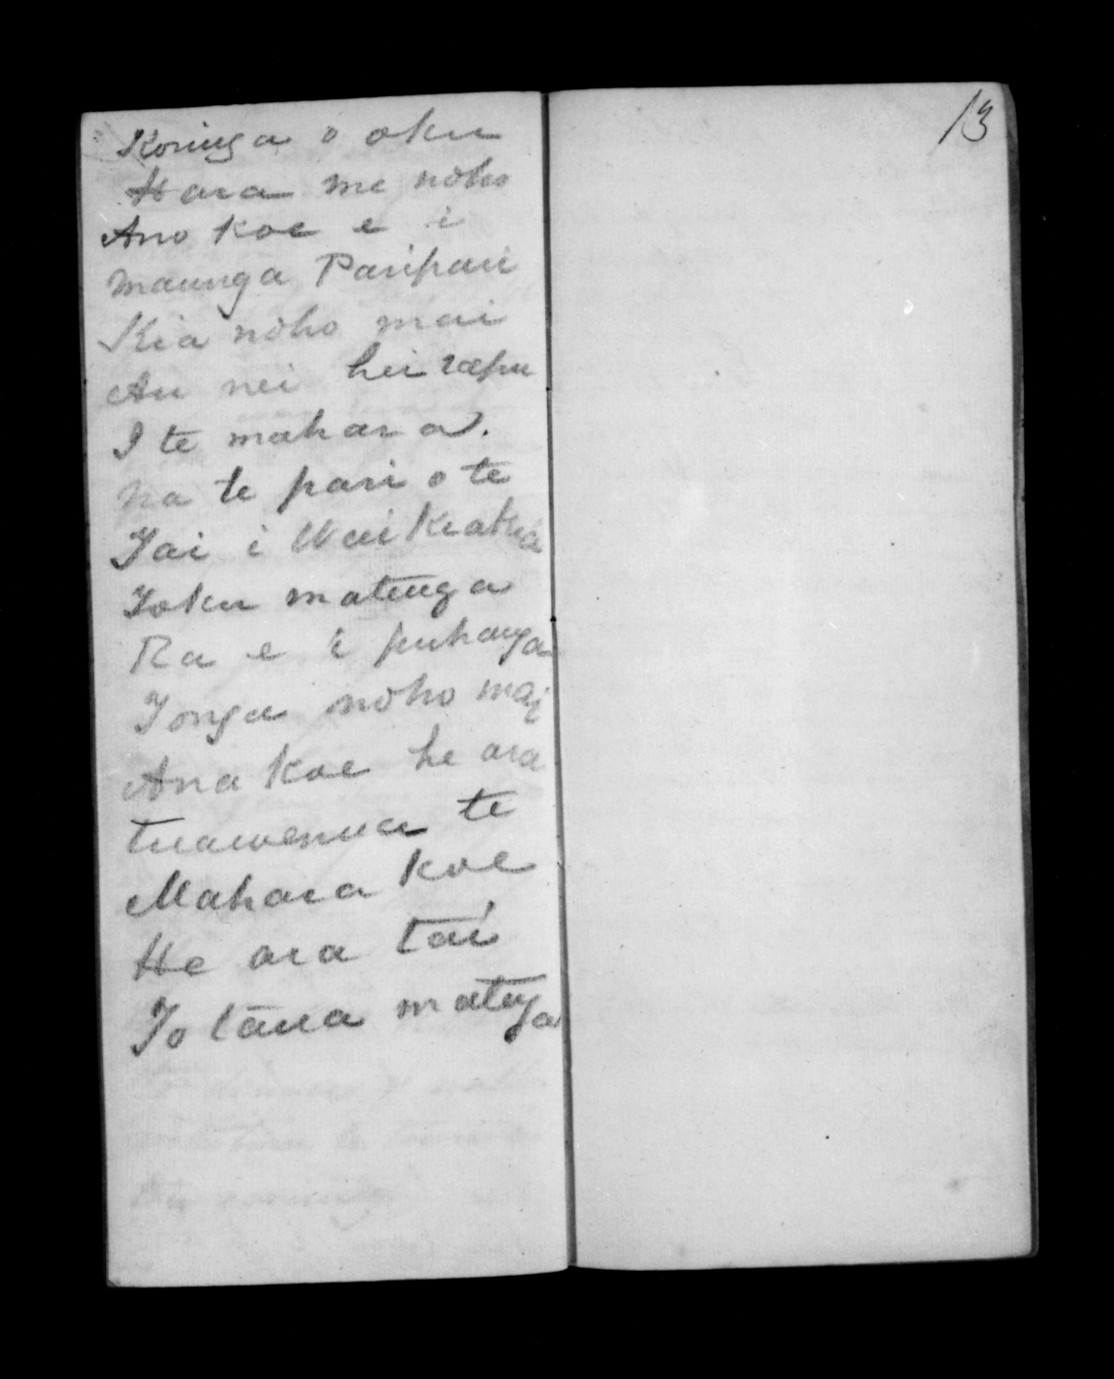 Koninga o oku
Hara me noho
Ano koe e i
maunga Paripari
Kia noho mai
Au nei hei rapu
I te mahara.
na te pari o te
Tai i Wai Keakea
Toku matenga
Ra e i puhanga
Tonga noho mai
Ana koe he ara
tuawenua te
Mahara koe
He ara tai
To taua matenga
13